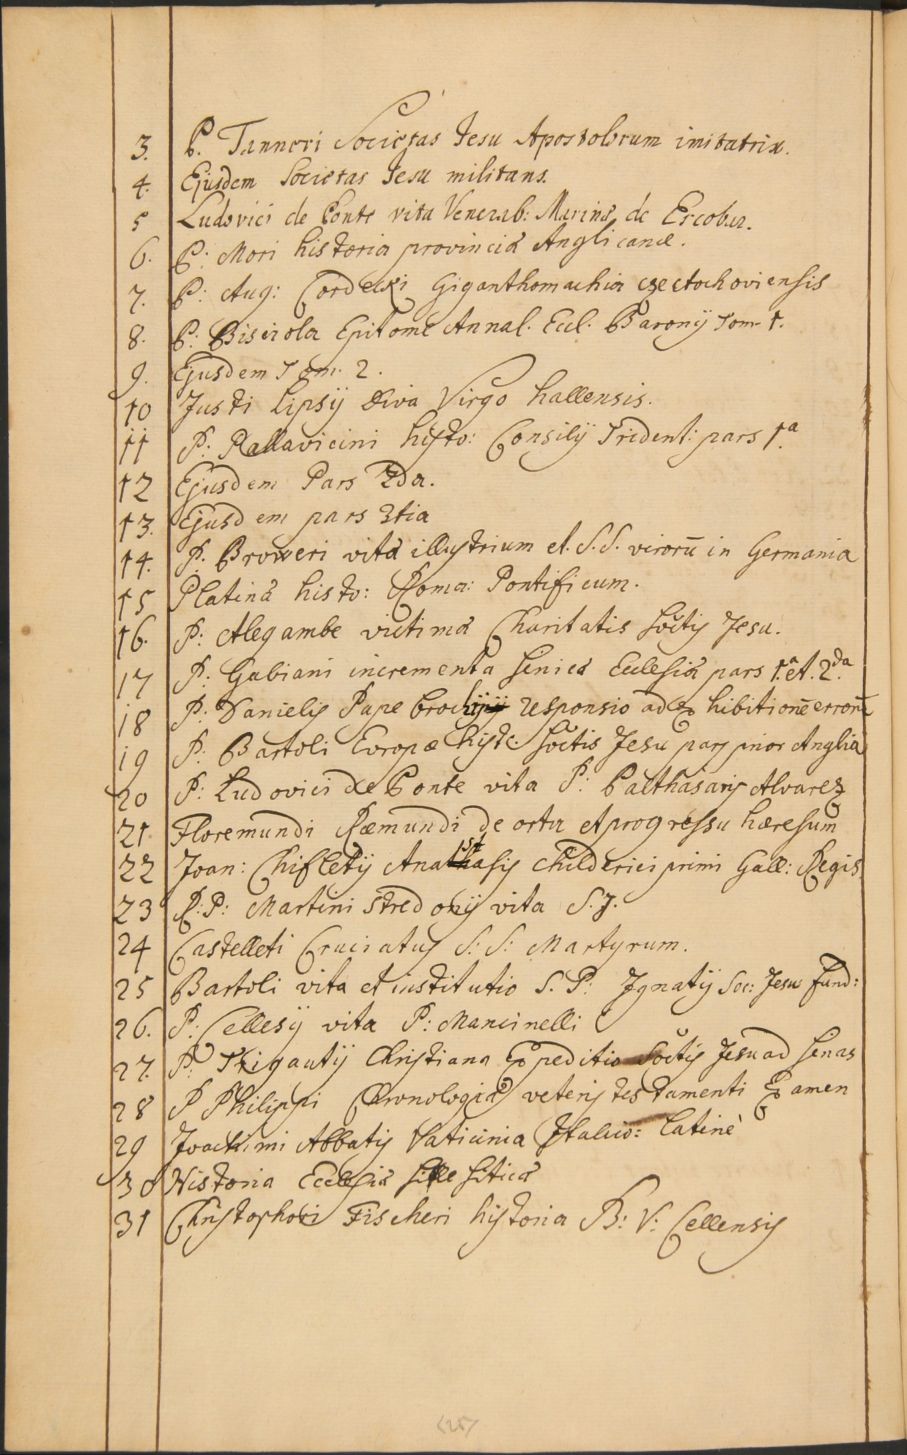 3. P. Tanneri Societas Jesu Apostolorum imitatrix.
4. Ejusdem Societas Jesu militans.
5 Ludovici de Ponte vita Venerab: Marinæ de Escobar.
6. P: Mori historia provinciæ Anglicanæ.
7. P: Aug: Cordeski Giganthomachia częstochoviensis
8. P: Bisciola Epitome Annal. Eccl. Baronij Tom. 1.
9. Ejusdem Tom. 2.
10 Justi Lipsij Diva Virgo hallensis.
11 P: Pallavicini histo: Consilij Trident: pars 1.a
12 Ejusdem Pars 2da.
13. Ejusdem pars 3tia
14. P. Broweri vitæ illustrium et. S.S. viroru in Germania
15 Platinæ histo: Roma: Pontificum.
16. P: Alegambe victimæ Charitatis Soctis Jesu.
17 P. Gabiani incrementa Sinicæ Ecclesiæ pars 1.a et. 2.da
18 P: Danielis Pape brochij Responsio ad Exhibitione erroru
19 P: Bartoli Europæ histo: Soctis Jesu pars prior Anglia
20 P: Ludovici de Ponte vita P: Balthasaris Alvarez
21. Floremundi Ræmundi de ortu et progressu hæresum
22 Joan: Chifletij Anastasis Childerici primi Gall: Regis
23 R:P: Martini Stredonij vita S.J.
24 Castelleti Cruciatus S: S: Martyrum.
25 Bartoli vita et institutio S. P: Ignatij Soc: Jesu fund:
26. P: Cellesij vita P: Mancinelli
27. P: Trigautij Christiana Expeditio Soctis Jesu ad Sinas
28 P Philippi Chronologiæ veteris testamenti Examen
29 Joachimi Abbatis Vaticinia Italico: Latinè
30 Historia Ecclesiæ
31 Christophori Fischeri historia B: V: Cellensis
(25)